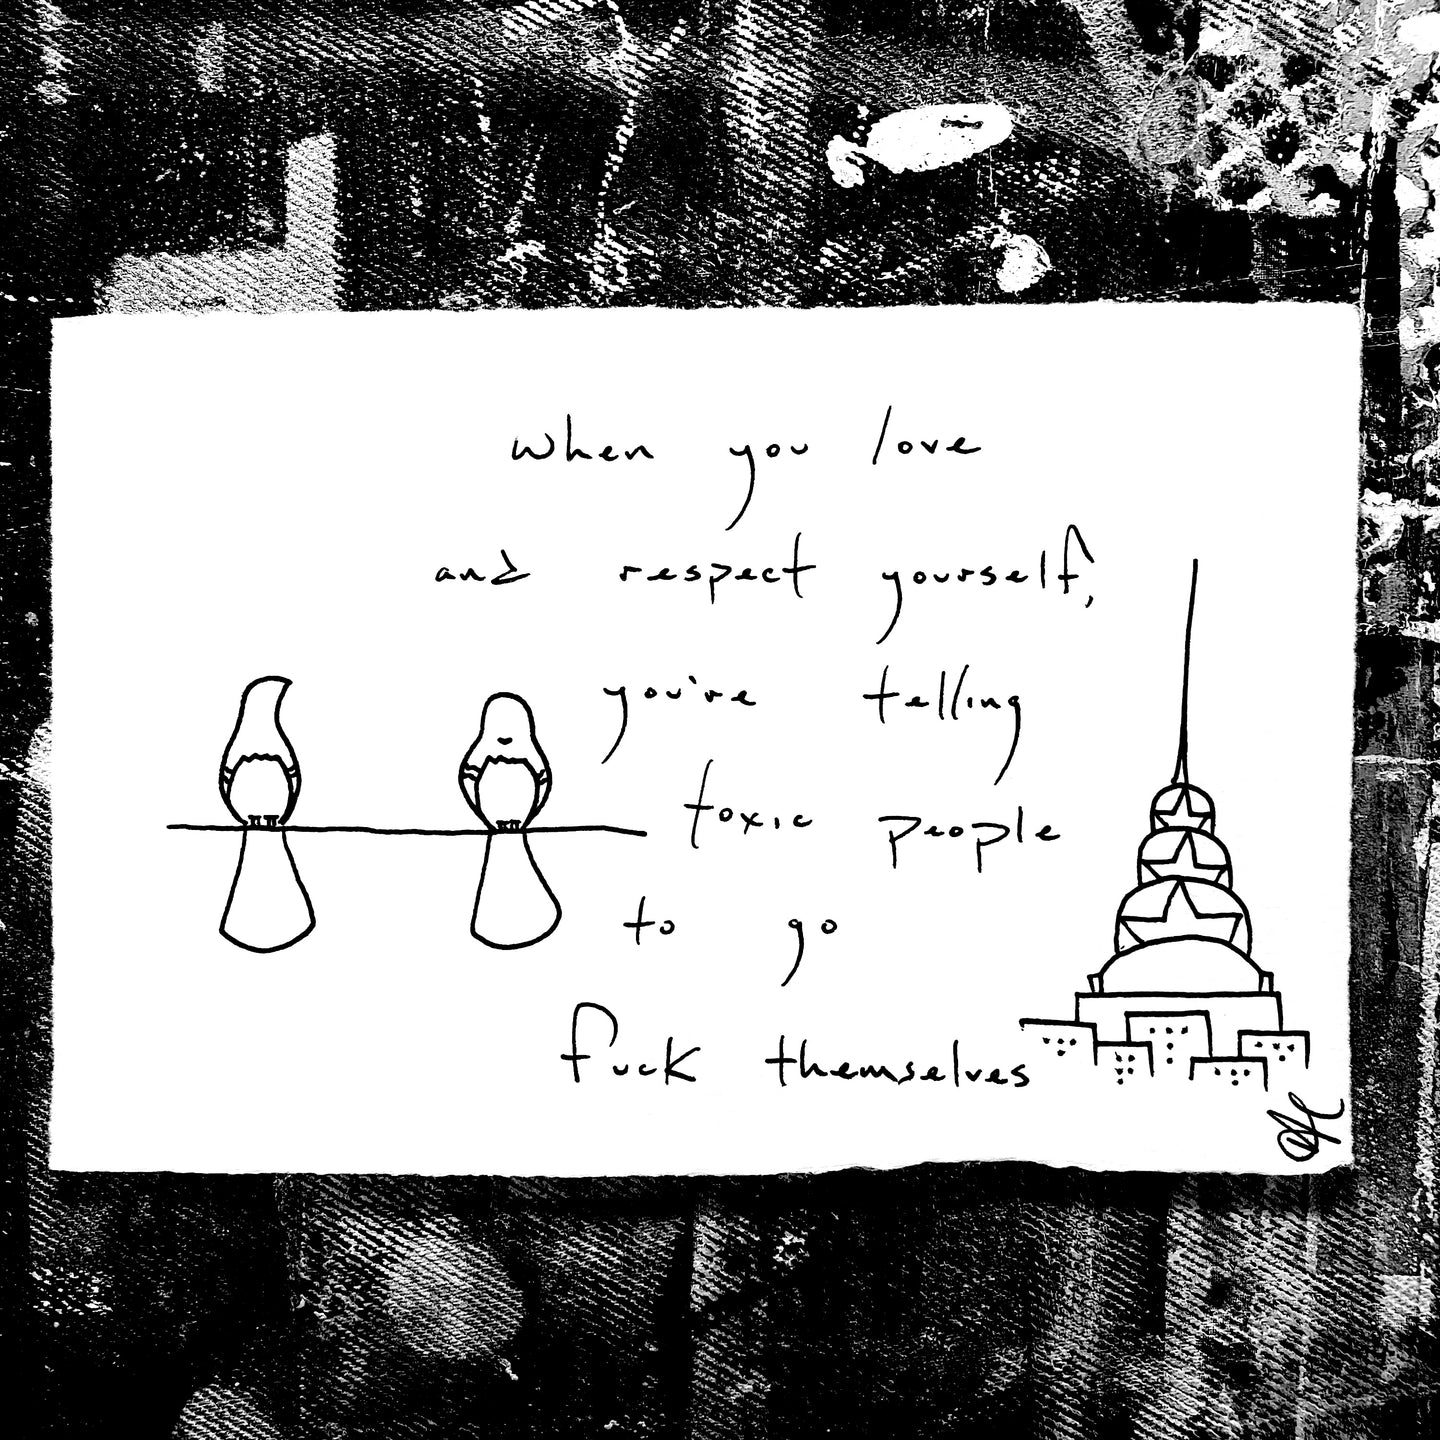 when you love
and respect yourself,
you're telling
toxic people
to go
fuck themselves